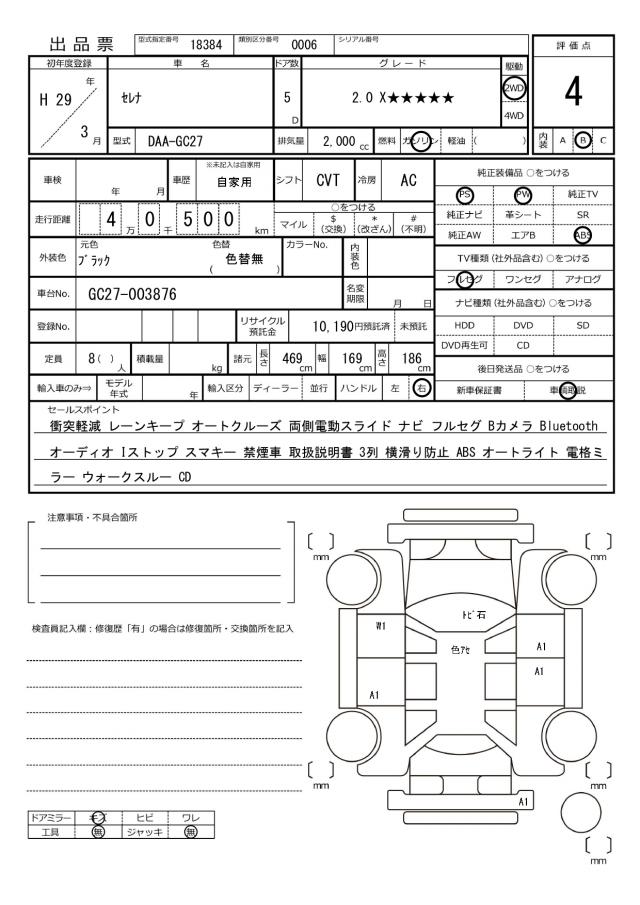 出品票 型式指定番号 18384 類別区分番号 0006 シリアル番号
評価点
4
内装 A B C
初年度登録 車名 ドア数 グレード 駆動
H 29 年 3 月
ｾﾚﾅ
5 D
2.0 X★★★★★
2WD
4WD
型式 DAA-GC27 排気量 2,000 cc 燃料 ガソリン 軽油 ( )
車検 年 月 車歴 ※未記入は自家用 自家用 シフト CVT 冷房 AC
走行距離 4 万 0 千 5 0 0 km
○をつける
マイル $ (交換) * (改ざん) # (不明)
外装色 元色 ﾌﾞﾗｯｸ 色替 ( 色替無 ) カラーNo. 内装色
車台No. GC27-003876 名変期限 月 日
登録No. リサイクル預託金 10,190円預託済 未預託
定員 8( )人 積載量 kg 諸元 長さ 469cm 幅 169cm 高さ 186cm
輸入車のみ⇒ モデル年式 年 輸入区分 ディーラー 並行 ハンドル 左 右
純正装備品 ○をつける
PS PW 純正TV
純正ナビ 革シート SR
純正AW エアB ABS
TV種類 (社外品含む) ○をつける
フルセグ ワンセグ アナログ
ナビ種類 (社外品含む) ○をつける
HDD DVD SD
DVD再生可 CD
後日発送品 ○をつける
新車保証書 車輌取説
セールスポイント
衝突軽減 レーンキープ オートクルーズ 両側電動スライド ナビ フルセグ Bカメラ Bluetooth
オーディオ Iストップ スマキー 禁煙車 取扱説明書 3列 横滑り防止 ABS オートライト 電格ミ
ラー ウォークスルー CD
注意事項・不具合箇所
検査員記入欄：修復歴「有」の場合は修復箇所・交換箇所を記入
ドアミラー キズ ヒビ ワレ
工具 無 ジャッキ 無
〔 〕mm
〔 〕mm
ﾄﾋﾞ石
W1
色ｱｾ
A1
A1
A1
〔 〕mm
〔 〕mm
A1
〔 〕mm